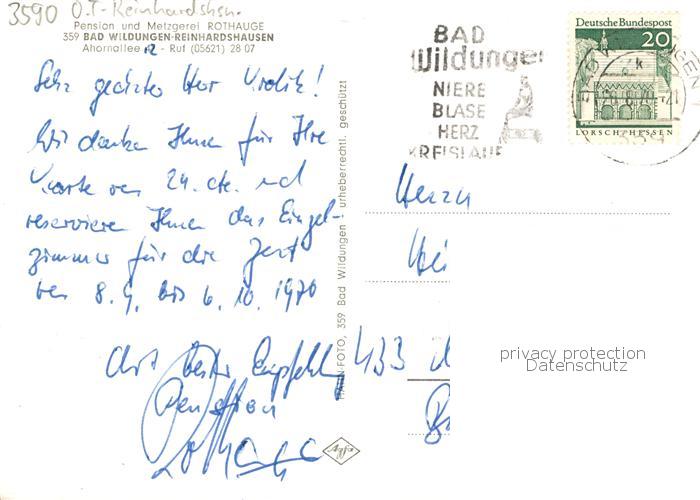 3590 O.T. Reinhardshsn.
Pension und Metzgerei ROTHAUGE
359 BAD WILDUNGEN-REINHARDSHAUSEN
Ahornallee 12 - Ruf (05621) 28 07
Sehr geehrter Herr
Wir danken Ihnen für Ihre
Karte vom 24. ds. und
reservieren Ihnen das Einzel-
zimmer für die Zeit
vom 8.9. bis 6.10.1970
Mit bester Empfehlung
Pension
Rothauge
HAHN-FOTO, 359 Bad Wildungen urheberrechtl. geschützt
Agfa
BAD
Wildungen
NIERE
BLASE
HERZ
KREISLAUF
Deutsche Bundespost
20
LORSCH/HESSEN
Herrn
Hei
433
privacy protection
Datenschutz